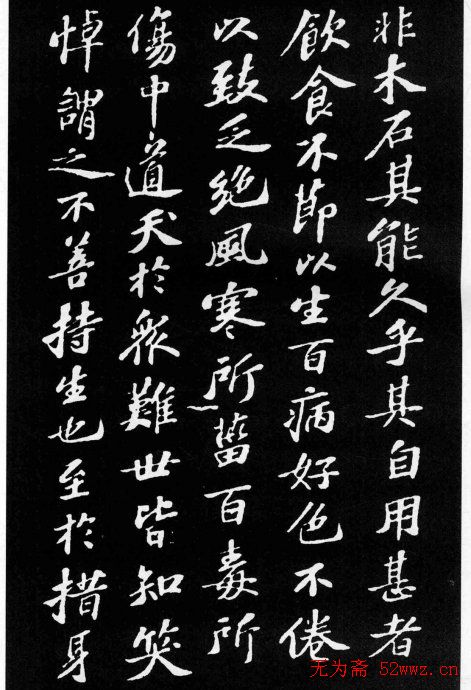 非木石其能久乎其自用甚者
飲食不節以生百病好色不倦
以致乏絶風寒所菑百毒所
傷中道夭於眾難世皆知笑
悼謂之不善持生也至於措身
无为斋 52wwz.cn